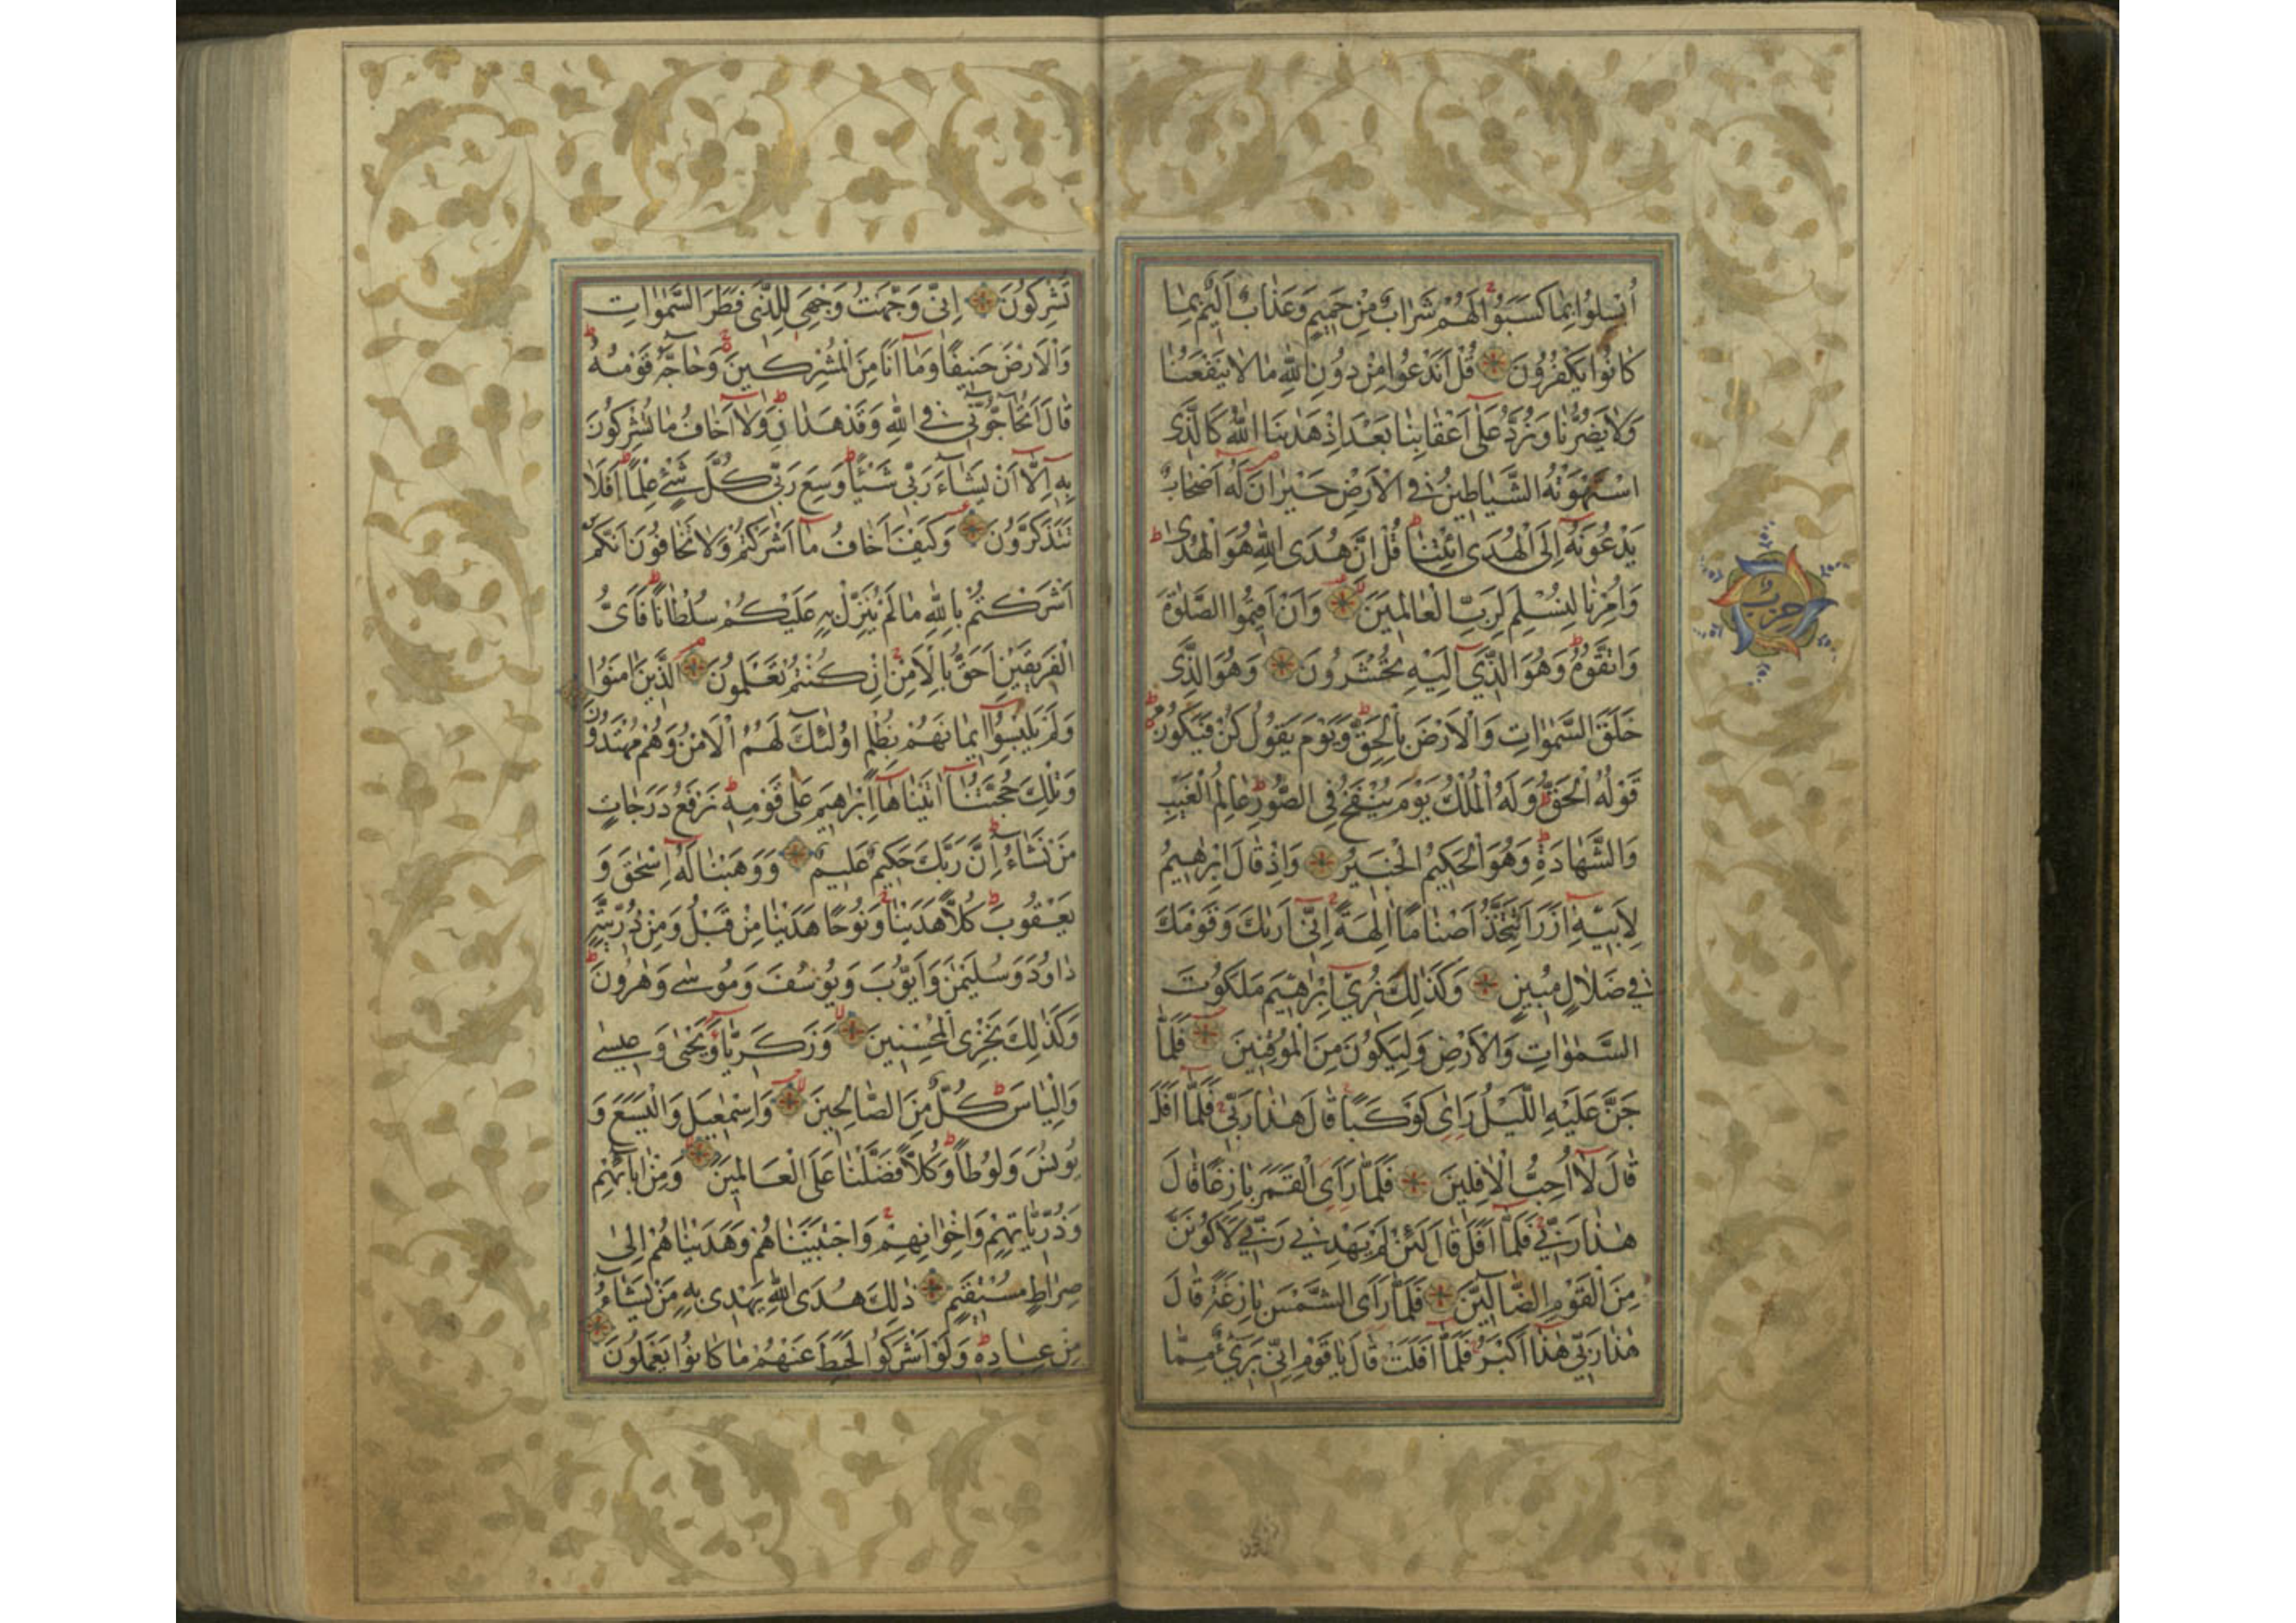 اُبْسِلُوا بِمَا كَسَبُوا لَهُمْ شَرَابٌ مِنْ حَمِيمٍ وَعَذَابٌ اَلِيمٌ بِمَا
كَانُوا يَكْفُرُونَ قُلْ اَنَدْعُوا مِنْ دُونِ اللّٰهِ مَا لَا يَنْفَعُنَا
وَلَا يَضُرُّنَا وَنُرَدُّ عَلٰٓى اَعْقَابِنَا بَعْدَ اِذْ هَدٰينَا اللّٰهُ كَالَّذِى
اسْتَهْوَتْهُ الشَّيَاطِينُ فِى الْاَرْضِ حَيْرَانَ لَهُ اَصْحَابٌ
يَدْعُونَهُ اِلَى الْهُدَى ائْتِنَا قُلْ اِنَّ هُدَى اللّٰهِ هُوَ الْهُدٰى
وَاُمِرْنَا لِنُسْلِمَ لِرَبِّ الْعَالَمِينَ وَاَنْ اَقِيمُوا الصَّلٰوةَ
وَاتَّقُوهُ وَهُوَ الَّذِىٓ اِلَيْهِ تُحْشَرُونَ وَهُوَ الَّذِى
خَلَقَ السَّمٰوَاتِ وَالْاَرْضَ بِالْحَقِّ وَيَوْمَ يَقُولُ كُنْ فَيَكُونُ
قَوْلُهُ الْحَقُّ وَلَهُ الْمُلْكُ يَوْمَ يُنْفَخُ فِى الصُّورِ عَالِمُ الْغَيْبِ
وَالشَّهَادَةِ وَهُوَ الْحَكِيمُ الْخَبِيرُ وَاِذْ قَالَ اِبْرٰهِيمُ
لِاَبِيهِ اٰزَرَ اَتَتَّخِذُ اَصْنَامًا اٰلِهَةً اِنِّىٓ اَرٰيكَ وَقَوْمَكَ
فِى ضَلَالٍ مُبِينٍ وَكَذٰلِكَ نُرِىٓ اِبْرٰهِيمَ مَلَكُوتَ
السَّمٰوَاتِ وَالْاَرْضِ وَلِيَكُونَ مِنَ الْمُوقِنِينَ فَلَمَّا
جَنَّ عَلَيْهِ اللَّيْلُ رَاٰى كَوْكَبًا قَالَ هٰذَا رَبِّى فَلَمَّٓا اَفَلَ
قَالَ لَٓا اُحِبُّ الْاٰفِلِينَ فَلَمَّا رَاَى الْقَمَرَ بَازِغًا قَالَ
هٰذَا رَبِّى فَلَمَّٓا اَفَلَ قَالَ لَئِنْ لَمْ يَهْدِنِى رَبِّى لَاَكُونَنَّ
مِنَ الْقَوْمِ الضَّٓالِّينَ فَلَمَّا رَاَى الشَّمْسَ بَازِغَةً قَالَ
هٰذَا رَبِّى هٰذَٓا اَكْبَرُ فَلَمَّٓا اَفَلَتْ قَالَ يَا قَوْمِ اِنِّى بَرِىٓءٌ مِمَّا
حزب
تُشْرِكُونَ اِنِّى وَجَّهْتُ وَجْهِىَ لِلَّذِى فَطَرَ السَّمٰوَاتِ
وَالْاَرْضَ حَنِيفًا وَمَٓا اَنَا مِنَ الْمُشْرِكِينَ وَحَٓاجَّهُ قَوْمُهُ
قَالَ اَتُحَٓاجُّٓونِّى فِى اللّٰهِ وَقَدْ هَدَانِ وَلَٓا اَخَافُ مَا تُشْرِكُونَ
بِهِٓ اِلَّٓا اَنْ يَشَٓاءَ رَبِّى شَيْئًا وَسِعَ رَبِّى كُلَّ شَىْءٍ عِلْمًا اَفَلَا
تَتَذَكَّرُونَ وَكَيْفَ اَخَافُ مَٓا اَشْرَكْتُمْ وَلَا تَخَافُونَ اَنَّكُمْ
اَشْرَكْتُمْ بِاللّٰهِ مَا لَمْ يُنَزِّلْ بِهِ عَلَيْكُمْ سُلْطَانًا فَاَىُّ
الْفَرِيقَيْنِ اَحَقُّ بِالْاَمْنِ اِنْ كُنْتُمْ تَعْلَمُونَ اَلَّذِينَ اٰمَنُوا
وَلَمْ يَلْبِسُٓوا اِيمَانَهُمْ بِظُلْمٍ اُولٰٓئِكَ لَهُمُ الْاَمْنُ وَهُمْ مُهْتَدُونَ
وَتِلْكَ حُجَّتُنَٓا اٰتَيْنَاهَٓا اِبْرٰهِيمَ عَلٰى قَوْمِهِ نَرْفَعُ دَرَجَاتٍ
مَنْ نَشَٓاءُ اِنَّ رَبَّكَ حَكِيمٌ عَلِيمٌ وَوَهَبْنَا لَهُٓ اِسْحٰقَ وَ
يَعْقُوبَ كُلًّا هَدَيْنَا وَنُوحًا هَدَيْنَا مِنْ قَبْلُ وَمِنْ ذُرِّيَّتِهِ
دَاوُدَ وَسُلَيْمٰنَ وَاَيُّوبَ وَيُوسُفَ وَمُوسٰى وَهٰرُونَ
وَكَذٰلِكَ نَجْزِى الْمُحْسِنِينَ وَزَكَرِيَّا وَيَحْيٰى وَعِيسٰى
وَاِلْيَاسَ كُلٌّ مِنَ الصَّالِحِينَ وَاِسْمٰعِيلَ وَالْيَسَعَ وَ
يُونُسَ وَلُوطًا وَكُلًّا فَضَّلْنَا عَلَى الْعَالَمِينَ وَمِنْ اٰبَٓائِهِمْ
وَذُرِّيَّاتِهِمْ وَاِخْوَانِهِمْ وَاجْتَبَيْنَاهُمْ وَهَدَيْنَاهُمْ اِلٰى
صِرَاطٍ مُسْتَقِيمٍ ذٰلِكَ هُدَى اللّٰهِ يَهْدِى بِهِ مَنْ يَشَٓاءُ
مِنْ عِبَادِهِ وَلَوْ اَشْرَكُوا لَحَبِطَ عَنْهُمْ مَا كَانُوا يَعْمَلُونَ